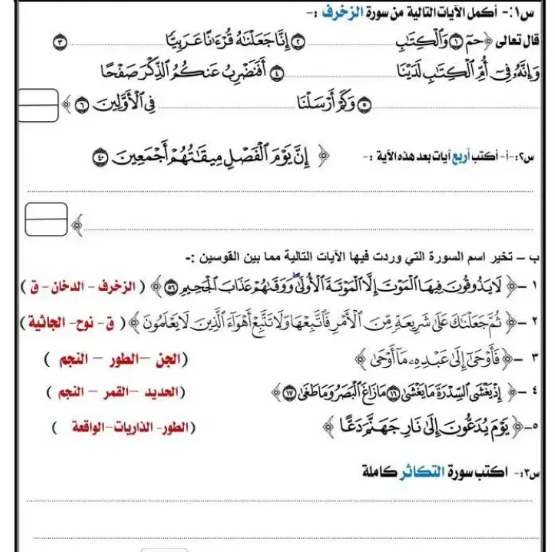 س١:- أكمل الآيات التالية من سورة الزخرف :-
قال تعالى ﴿حمٓ ۝١ وَٱلْكِتَٰبِ ........ ۝٢ إِنَّا جَعَلْنَٰهُ قُرْءَٰنًا عَرَبِيًّا ........ ۝٣
وَإِنَّهُۥ فِىٓ أُمِّ ٱلْكِتَٰبِ لَدَيْنَا ........ ۝٤ أَفَنَضْرِبُ عَنكُمُ ٱلذِّكْرَ صَفْحًا
........ ۝٥ وَكَمْ أَرْسَلْنَا ........ فِى ٱلْأَوَّلِينَ ۝٦ ﴾
س٢:- أ- أكتب أربع آيات بعد هذه الآية :- ﴿ إِنَّ يَوْمَ ٱلْفَصْلِ مِيقَٰتُهُمْ أَجْمَعِينَ ۝٤٠
........ ﴾
ب – تخير اسم السورة التي وردت فيها الآيات التالية مما بين القوسين :-
١ -﴿ لَا يَذُوقُونَ فِيهَا ٱلْمَوْتَ إِلَّا ٱلْمَوْتَةَ ٱلْأُولَىٰ ۖ وَوَقَىٰهُمْ عَذَابَ ٱلْجَحِيمِ ۝٥٦ ﴾ ( الزخرف – الدخان – ق )
٢ -﴿ ثُمَّ جَعَلْنَٰكَ عَلَىٰ شَرِيعَةٍ مِّنَ ٱلْأَمْرِ فَٱتَّبِعْهَا وَلَا تَتَّبِعْ أَهْوَآءَ ٱلَّذِينَ لَا يَعْلَمُونَ ﴾ ( ق – نوح – الجاثية )
٣ -﴿ فَأَوْحَىٰٓ إِلَىٰ عَبْدِهِۦ مَآ أَوْحَىٰ ﴾ (الجن – الطور – النجم )
٤ -﴿ إِذْ يَغْشَى ٱلسِّدْرَةَ مَا يَغْشَىٰ ۝١٦ مَا زَاغَ ٱلْبَصَرُ وَمَا طَغَىٰ ۝١٧ ﴾ (الحديد – القمر – النجم )
٥-﴿ يَوْمَ يُدَعُّونَ إِلَىٰ نَارِ جَهَنَّمَ دَعًّا ﴾ (الطور- الذاريات – الواقعة )
س٣:- اكتب سورة التكاثر كاملة